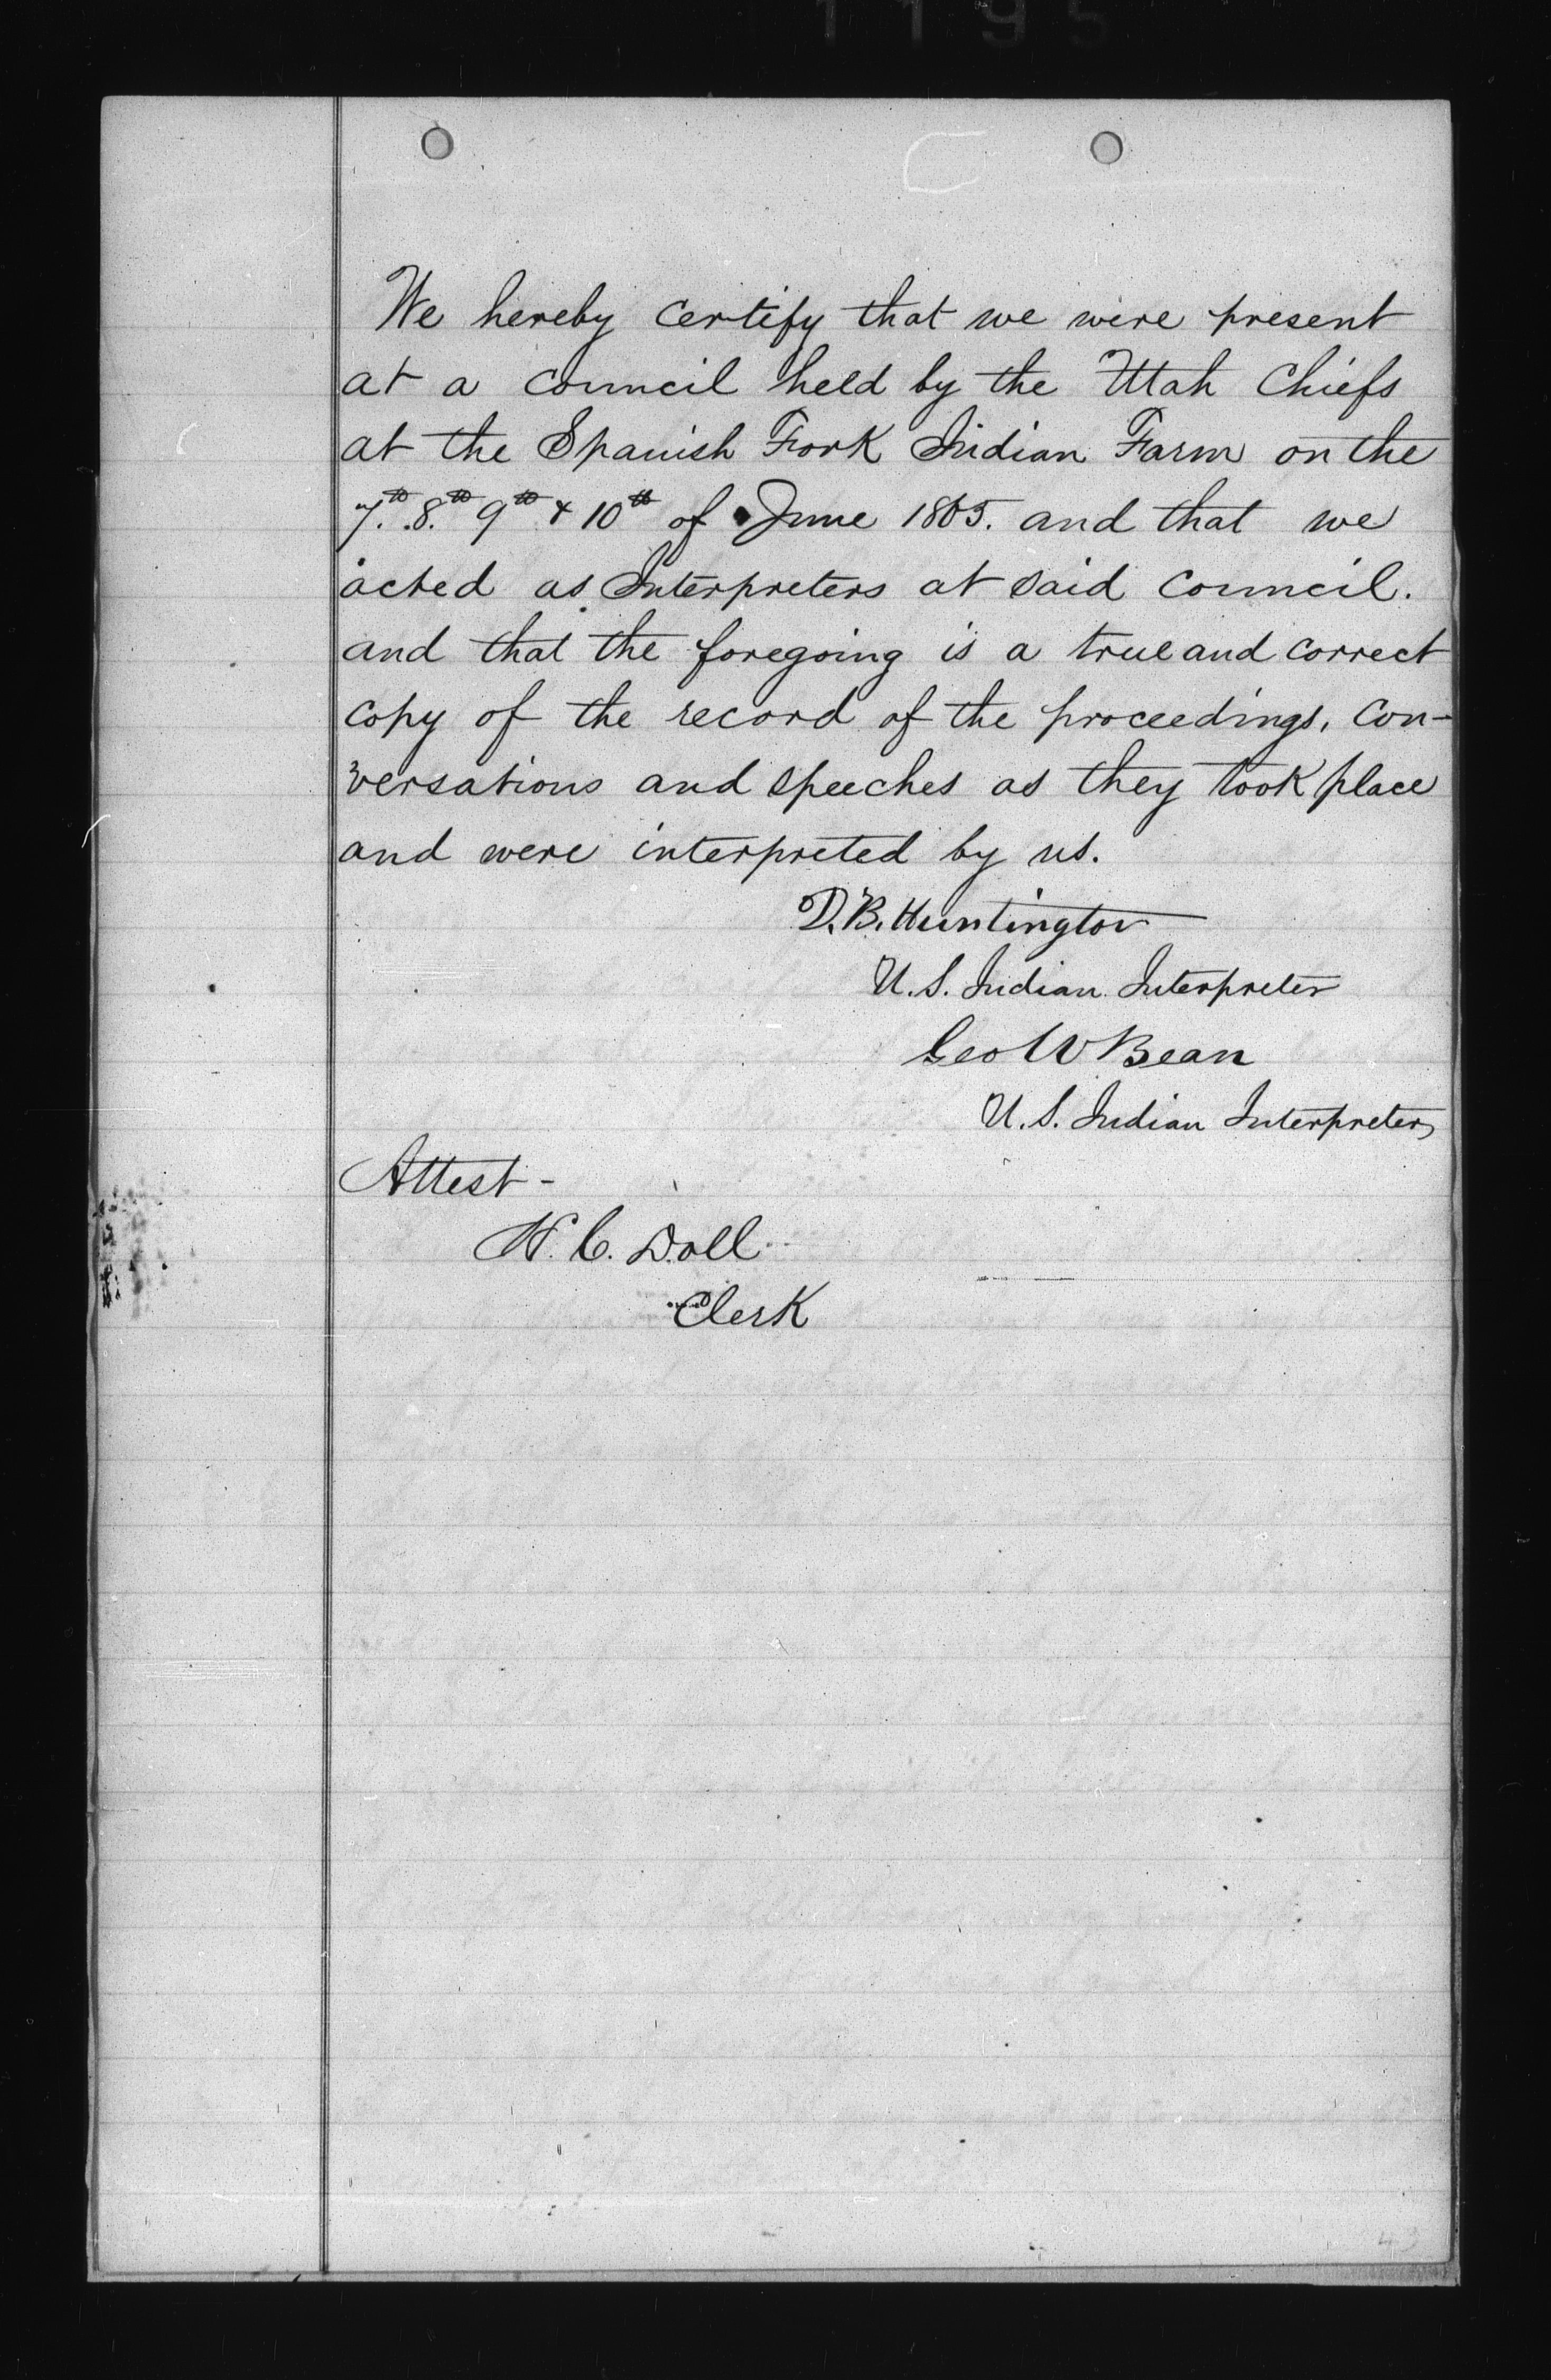 1195
We hereby certify that we were present
at a council held by the Utah Chiefs
at the Spanish Fork Indian Farm on the
7th. 8th. 9th & 10th of June 1865. and that we
acted as Interpreters at said council.
and that the foregoing is a true and correct
copy of the record of the proceedings, con-
versations and speeches as they took place
and were interpreted by us.
D. B. Huntington
U. S. Indian Interpreter
Geo W Bean
U. S. Indian Interpreter
Attest -
C. Doll
Clerk
43